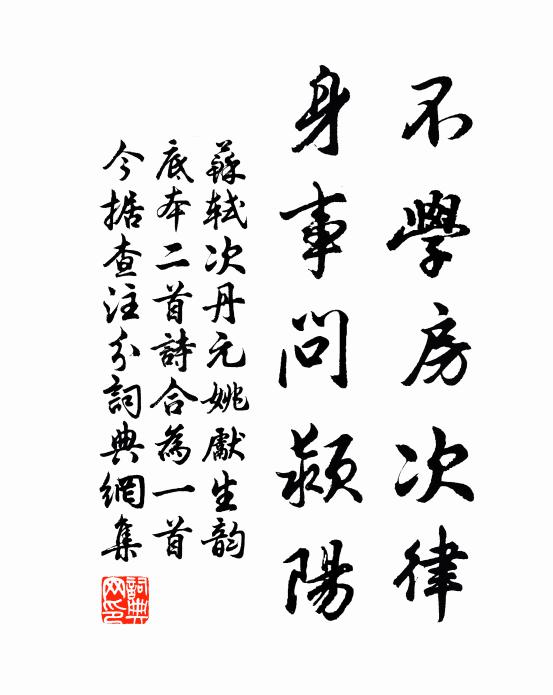 不學房次律
身事問潁陽
蘇軾次丹元姚獻生韵
底本二首詩合為一首
今据查注分詞典網集
詞典網印